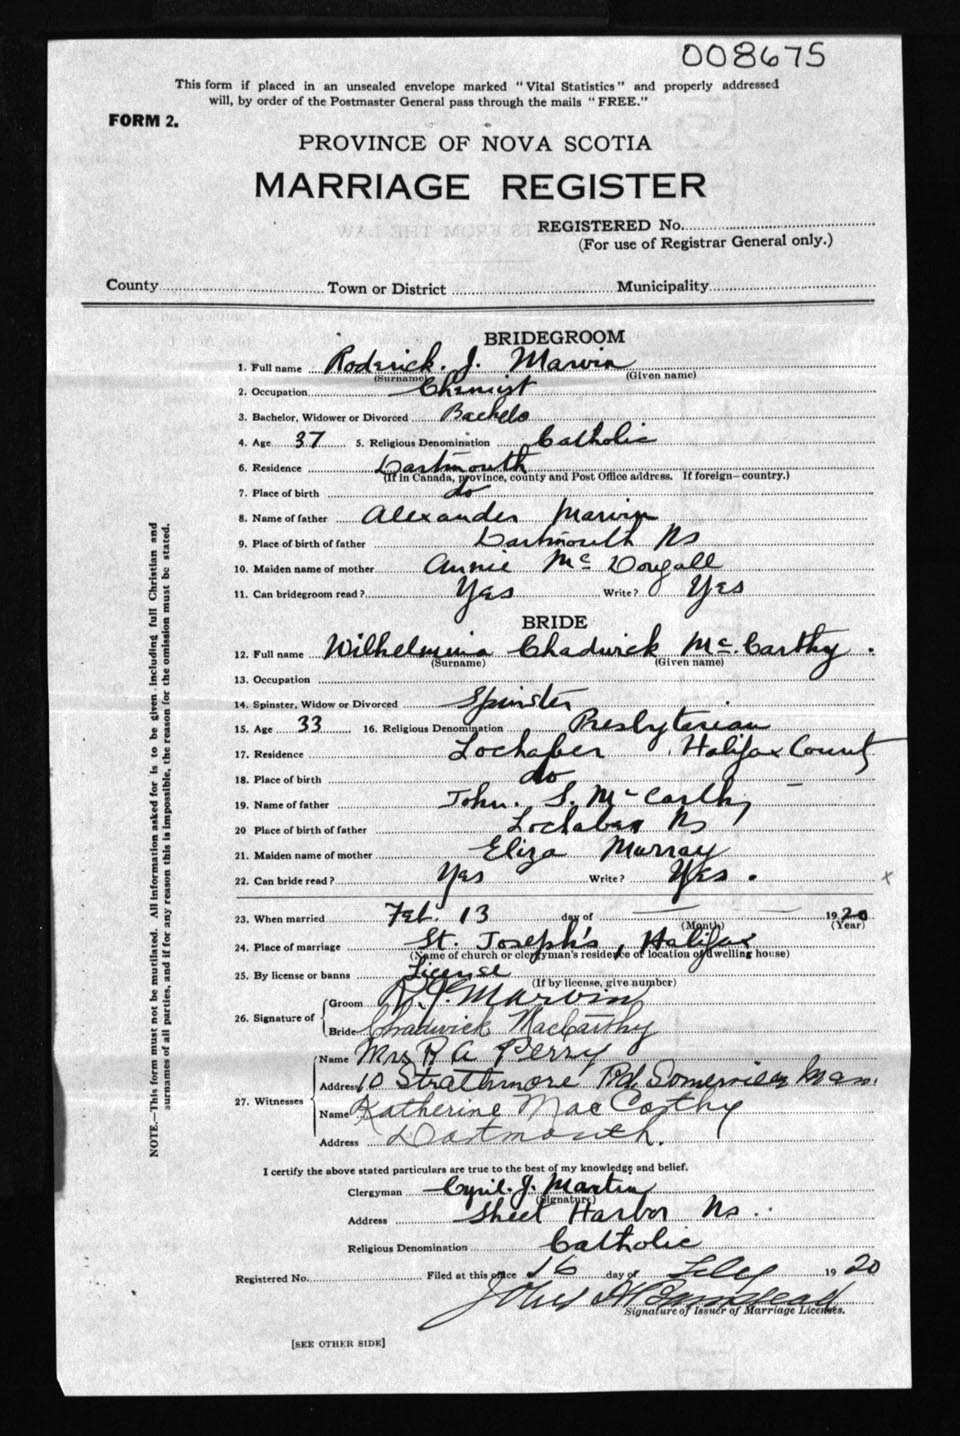 008675
This form if placed in an unsealed envelope marked "Vital Statistics" and properly addressed
will, by order of the Postmaster General pass through the mails "FREE."
FORM 2.
PROVINCE OF NOVA SCOTIA
MARRIAGE REGISTER
REGISTERED No.
(For use of Registrar General only.)
County Town or District Municipality
BRIDEGROOM
1. Full name Roderick. J. Marvin
(Surname) (Given name)
2. Occupation Chemist
3. Bachelor, Widower or Divorced Bachelo
4. Age 37 5. Religious Denomination Catholic
6. Residence Dartmouth
(If in Canada, province, county and Post Office address. If foreign—country.)
7. Place of birth do
8. Name of father Alexander Marvin
9. Place of birth of father Dartmouth Ns
10. Maiden name of mother Annie Mc Dougall
11. Can bridegroom read? Yes Write? Yes
BRIDE
12. Full name Wilhelmina Chadwick Mc.Carthy.
(Surname) (Given name)
13. Occupation
14. Spinster, Widow or Divorced Spinster
15. Age 33 16. Religious Denomination Presbyterian
17. Residence Lochaber, Halifax County
18. Place of birth do
19. Name of father John. S. McCarthy
20 Place of birth of father Lochaber Ns
21. Maiden name of mother Eliza Murray
22. Can bride read? Yes Write? Yes. x
23. When married Feb. 13 day of 1920
(Month) (Year)
24. Place of marriage St. Joseph's, Halifax
(Name of church or clergyman's residence of location of dwelling house)
25. By license or banns License
(If by license, give number)
26. Signature of Groom R.J. Marvin
Bride Chadwick MacCarthy
27. Witnesses Name Mrs R A Perry
Address 10 Strathmore Rd. Somerville Mass.
Name Katherine MacCarthy
Address Dartmouth.
I certify the above stated particulars are true to the best of my knowledge and belief.
Clergyman Cyril. J. Martin
(Signature)
Address Sheet Harbor Ns.
Religious Denomination Catholic
Registered No. Filed at this office 16 day of 1920
John
Signature of Issuer of Marriage Licenses.
[SEE OTHER SIDE]
NOTE.—This form must not be mutilated. All information asked for is to be given, including full Christian and
surnames of all parties, and if for any reason this is impossible, the reason for the omission must be stated.